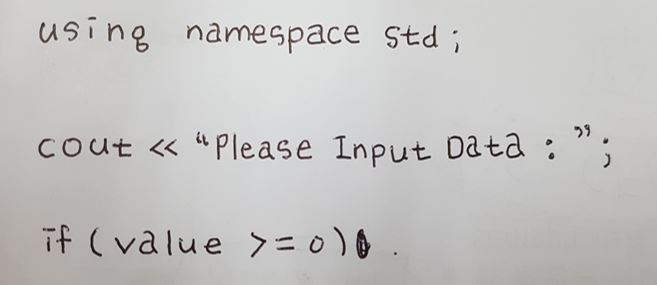 using namespace std;
cout << “Please Input Data : ”;
if (value >= 0) .